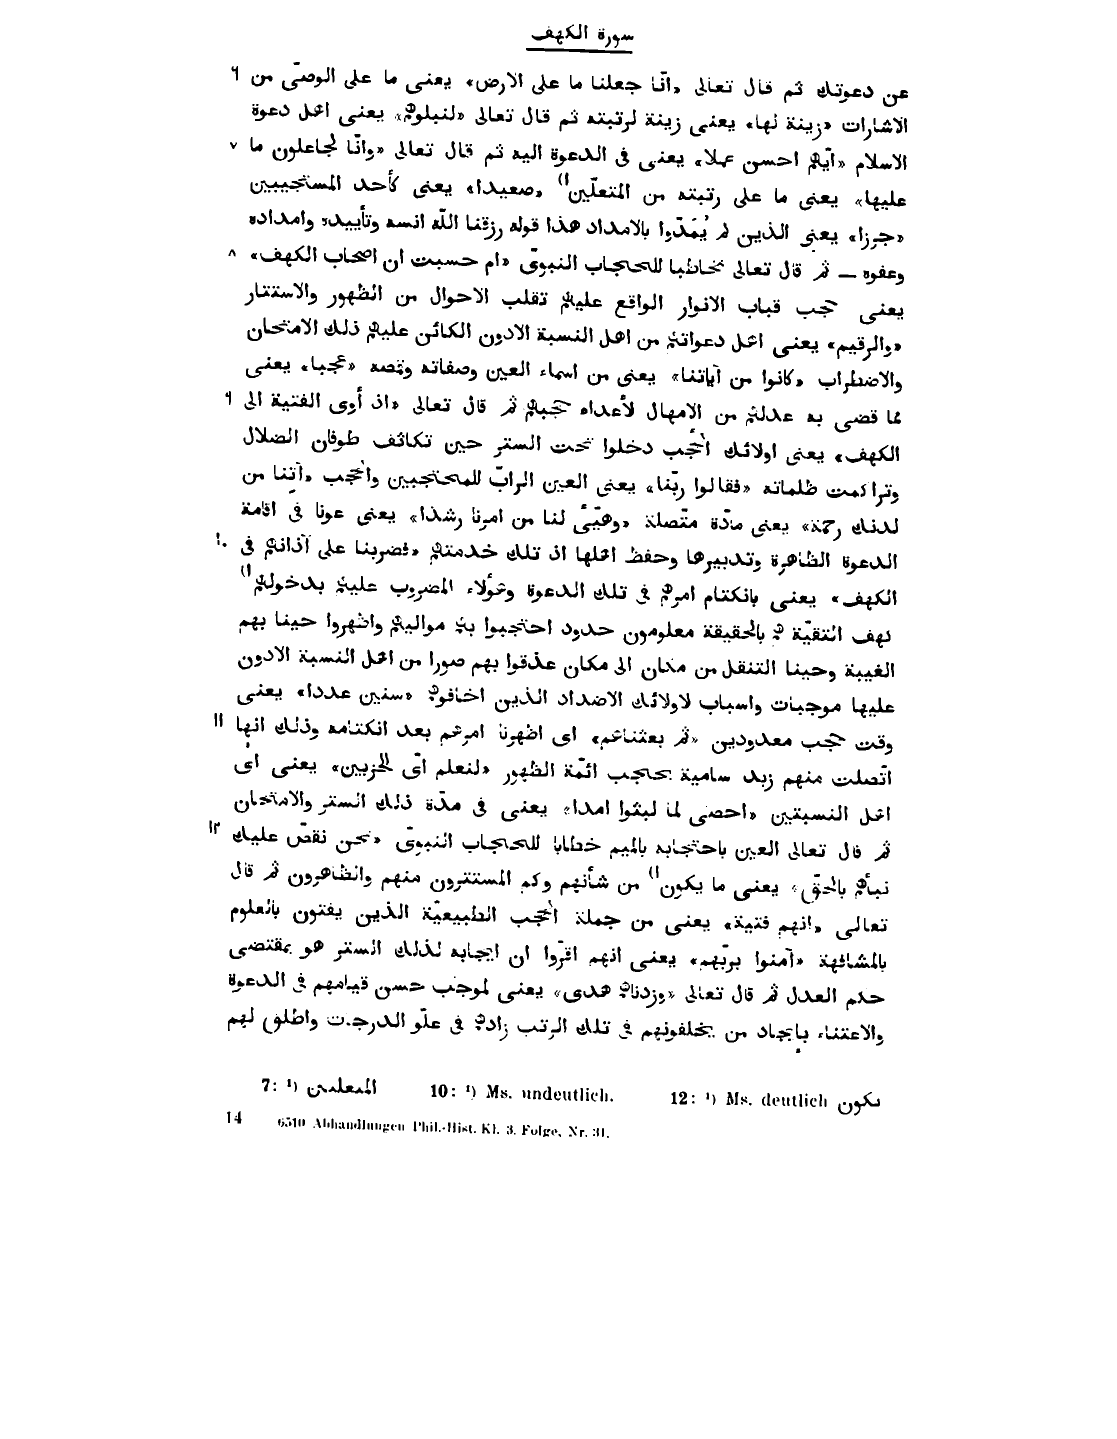 سورة الكهف
عن دعوتك ثم قال تعالى «انّا جعلنا ما على الارض» يعنى ما على الوصىّ من ٦
الاشارات «زينة لها» يعنى زينة لرتبته ثم قال تعالى «لنبلوهم» يعنى اهل دعوة
الاسلام «ايّهم احسن عملا» يعنى فى الدعوة اليه ثم قال تعالى «وانّا لجاعلون ما ٧
عليها» يعنى ما على رتبته من المتعلّين¹) «صعيدا» يعنى كأحد المستجيبين
«جرزا» يعنى الذين لم يُمَدّوا بالامداد هذا قوله رزقنا اللّه انسه وتأييده وامداده
وعفوه — ثم قال تعالى مخاطبا للحجاب النبوىّ «ام حسبت ان اصحاب الكهف» ٨
يعنى حجب قباب الانوار الواقع عليهم تقلب الاحوال من الظهور والاستتار
«والرقيم» يعنى اهل دعواتهم من اهل النسبة الادون الكائن عليهم ذلك الامتحان
والاضطراب «كانوا من آياتنا» يعنى من اسماء العين وصفاته وقمصه «عجبا» يعنى
مما قضى به عدلهم من الامهال لأعداء حجبهم ثم قال تعالى «اذ أوى الفتية الى ٩
الكهف» يعنى اولائك الحُجب دخلوا تحت الستر حين تكاثف طوفان الضلال
وتراكمت ظلماته «فقالوا ربّنا» يعنى العين الرابّ للمحتجبين والحجب «آتنا من
لدنك رحمة» يعنى مادّة متّصلة «وهيّئ لنا من امرنا رشدا» يعنى عونا فى اقامة
الدعوة الظاهرة وتدبيرها وحفظ اهلها اذ تلك خدمتهم «فضربنا على آذانهم فى ١٠
الكهف» يعنى بانكتام امرهم فى تلك الدعوة وهؤلاء المضروب عليهم بدخولهم¹)
كهف التقيّة هم بالحقيقة معلومون حدود احتجبوا بهم مواليهم واظهروا حينا بهم
الغيبة وحينا التنقل من مكان الى مكان عذقوا بهم صورا من اهل النسبة الادون
عليها موجبات واسباب لاولائك الاضداد الذين اخافوهم «سنين عددا» يعنى
وقت حجب معدودين «ثم بعثناهم» اى اظهرنا امرهم بعد انكتامه وذلك انها ١١
اتّصلت منهم زبد سامية بحجب ائمّة الظهور «لنعلم اىّ الحزبين» يعنى اىّ
اهل النسبتين «احصى لما لبثوا امدا» يعنى فى مدّة ذلك الستر والامتحان
ثم قال تعالى العين باحتجابه بالميم خطابا للحجاب النبوىّ «نحن نقصّ عليك ١٢
نبأهم بالحقّ» يعنى ما يكون¹) من شأنهم وكم المستترون منهم والظاهرون ثم قال
تعالى «انهم فتية» يعنى من جملة الحُجب الطبيعيّة الذين يفتون بالعلوم
بالمشافهة «آمنوا بربّهم» يعنى انهم اقرّوا ان ايجابه لذلك الستر هو بمقتضى
حكم العدل ثم قال تعالى «وزدناهم هدى» يعنى لموجب حسن قيامهم فى الدعوة
والاعتناء بإيجاد من يخلفونهم فى تلك الرتب زادهم فى علوّ الدرجات واطلق لهم
7: ¹) المىعلىىں 10: ¹) Ms. undeutlich. 12: ¹) Ms. deutlich ىكون
14 6510 Abhandlungen Phil.-Hist. Kl. 3. Folge, Nr. 31.